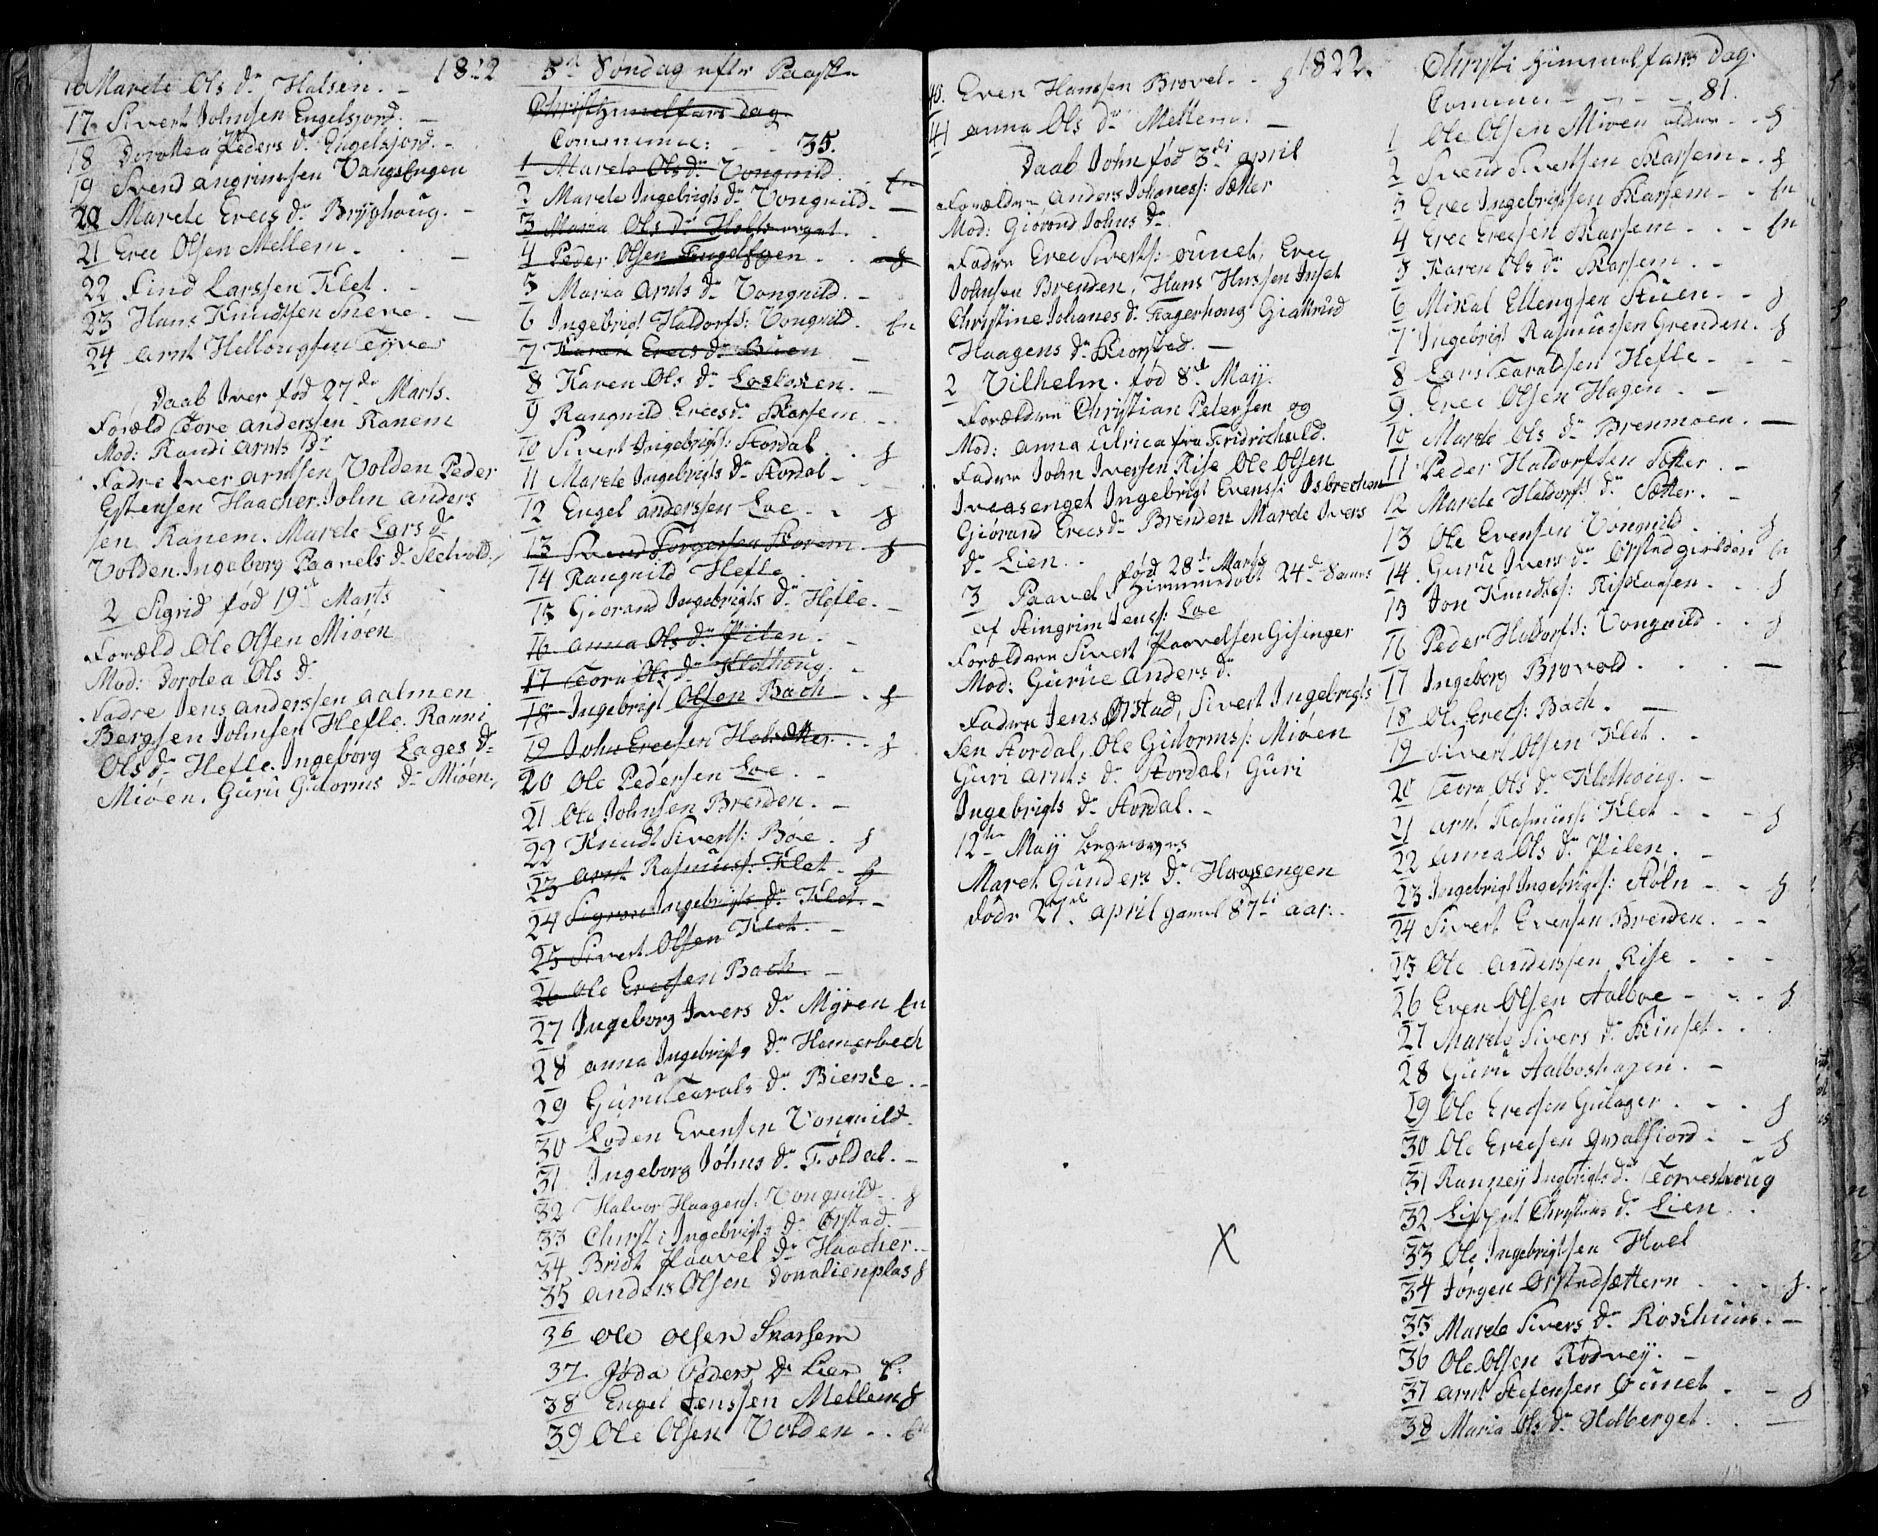 1822
16 Marete Ols dr Halsen. -
17. Sivert Johnsen Engelsjord. -
18 Dorottea Peders dr Engelsjord. -
19 Svend Angrimsen Vangsengen
20 Marete Erecs dr Bryghoug. -
21 Erec Olsen Mellem -
22 Find Larssen Klet. -
23 Hans Knudtsen Sneve. -
24 Arnt Hellougsen
Daab Iver fød 27de Marts.
Foræld Tore Anderssen Ranem
Mod: Randi Arnts dr
Fadre Iver Arntsen Volden Peder
Estensen Haacker. John Anders
sen Ranem. Marete Lars dr
Volden. Ingeborg Paavels dr
2 Sigrid fød 19de Marts
Foræld Ole Olsen Miøen
Mod: Dorotea Ols dr
Fadre Jens Anderssen Aalmen
Bergsen Johnsen Hefle. Ranni
Ols dr Hefle. Ingeborg Lages dr
Miøen. Guru Gutorms dr Miøen.
5te Søndag efter Paaske
Christi Himmelfars Dag
Communic: - - 35.
1 Marete Ols dr Vongnild. -
2 Marete Ingebrigts dr Vongnild. -
3 Maria Ols dr Holberget.
4 Peder Olsen Engelsgen
5 Maria Arnts dr Vongnild. -
6 Ingebrigt Haldorss: Vongnild.
7 Karen Erecs dr Brien
8 Karen Ols dr
9 Rangnild Erecs dr Skarsem
10 Sivert Ingebrigts: Stordal
11 Marete Ingebrigts dr Stordal -
12 Engel Anderssen Loe
13 Svend Torgersen Storem
14 Rangnild Hefle
15 Giørand Ingebrigts dr Hefle. -
16 Anna Ols dr Pilen. -
17 Tora Ols dr Klethoug. -
18 Ingebrigt Olsen Bach
19 John Erecsen
20 Ole Pedersen Loe. -
21 Ole Johnsen Brenden. -
22 Knudt Siverts: Bøe.
23 Arnt Rasmuss: Klet -
24 Ingebrigts dr Klet. -
25 Sivert Olsen Klet. -
26 Ole Erecsen Bach. -
27 Ingeborg Ivers dr Myren
28 Anna Ingebrigts dr Hamerbech
29 Guru Tarals dr
30 Loden Evensen Vongnild.
31 Ingeborg Johns dr Foldal. -
32 Halvor Haagens: Vongnild
33 Christi Ingebrigts dr Ørstad. -
34 Bridt Paavel dr Haacker. -
35 Anders Olsen Donalienplas
36 Ole Olsen Skarsem
37 Peders dr Lien
38 Engel Jenssen Mellem
39 Ole Olsen Volden
1822.
40. Even Hanssen Brovol
41 Anna Ols dr Mellem. -
Daab John fød 3di April
Forældre Anders Johaness: Sætter
Mod: Giørond Johns dr
Fadre Erec Siverts: Øunet, Erec
Johnsen Brenden, Hans Hanssen Inset
Christine Johanes dr Fagerhoug Giertrud
Haagens dr -
2 Vilhelm. fød 8de May.
Forældre Christian Petersen og
Mod: Anna Ulrica fra Fridrichald.
Fadre John Iversen Rise Ole Olsen
Ingebrigt Evenss: Isbrechen
Giørand Erecs dr Brenden Marete Ivers
dr Lien.
fød 28de Marts
3 Paavel Himmedøbt 24de
af Stingrim Jens: Loe
Forældre Sivert Paavelsen Gisinger
Mod: Gurue Anders dr
Fadre Jens Ørstad, Sivert Ingebrigts
sen Stordal, Ole Gutorms: Miøen
Guri Arnts dr Stordal, Guri
Ingebrigts dr Stordal. -
12te May begraves
Maret Gunders dr Haasengen
døde 27de April gamel 87ti aar.
X
Christi Himmelfars Dag.
Commu - - - 81.
1 Ole Olsen Miøen
2 Svend Sivertsen Skarsem
3 Erec Ingebrigtsen Skarsem
4 Erec Erecsen Skarsem
5 Karen Ols dr Skarsem. -
6 Mikal Ellengsen Stuen
7 Ingebrigt Rasmussen Grenden.
8 Lars Taraldsen Hefle
9. Erec Olsen Hagen. -
10 Marete Ols dr Brenmoen. -
11 Peder Haldorssen Sætter. -
12 Marete Haldors dr Sætter. -
13 Ole Evensen Vongnild
14. Guru Ivers dr
15 Jon Knudts:
16 Peder Haldorss: Vongnild
17 Ingeborg Brovold
18 Ole Erecs: Bach. -
19 Sivert Olsen Klet. -
20 Tora Ols dr Klethoug. -
21 Arnt Rasmuss: Klet
22 Anna Ols dr Pilen. -
23 Ingebrigt Ingebrigts: Støln
24 Sivert Evensen Brenden. -
25 Ole Anderssen Rise
26 Even Olsen Aalboe
27 Marete Sivers dr
28 Guru Aalboshagen. -
29 Ole Erecsen Gulager
30 Ole Erecsen
31 Ranney Ingbrigts dr
32 Christens dr Lien
33 Ole Ingebrigtsen Hoel
34 Jørgen Ørstadsættern
35 Marete Sivers dr Roskhuus. -
36 Ole Olsen -
37 Arnt Stefensen Øunet
38 Maria Ols dr Holberget. -